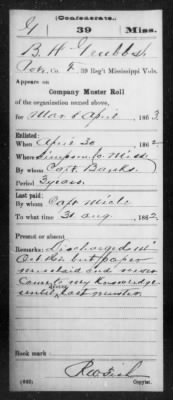 (Confederate.)
G 39 Miss.
B. H. Grubbs
Co. F, 39 Reg't Mississippi Vols.
Appears on
Company Muster Roll
of the organization named above,
for Mar & April, 1863.
Enlisted:
When April 30, 1862
Where Simpson Co Miss
By whom Capt. Banks
Period 3 years
Last paid:
By whom Capt
To what time 31 Aug, 1862.
Present or absent
Remarks: Discharged in
Oct but paper
and never
Came to my knowledge
since last muster.
Book mark:
(635) Copyist.